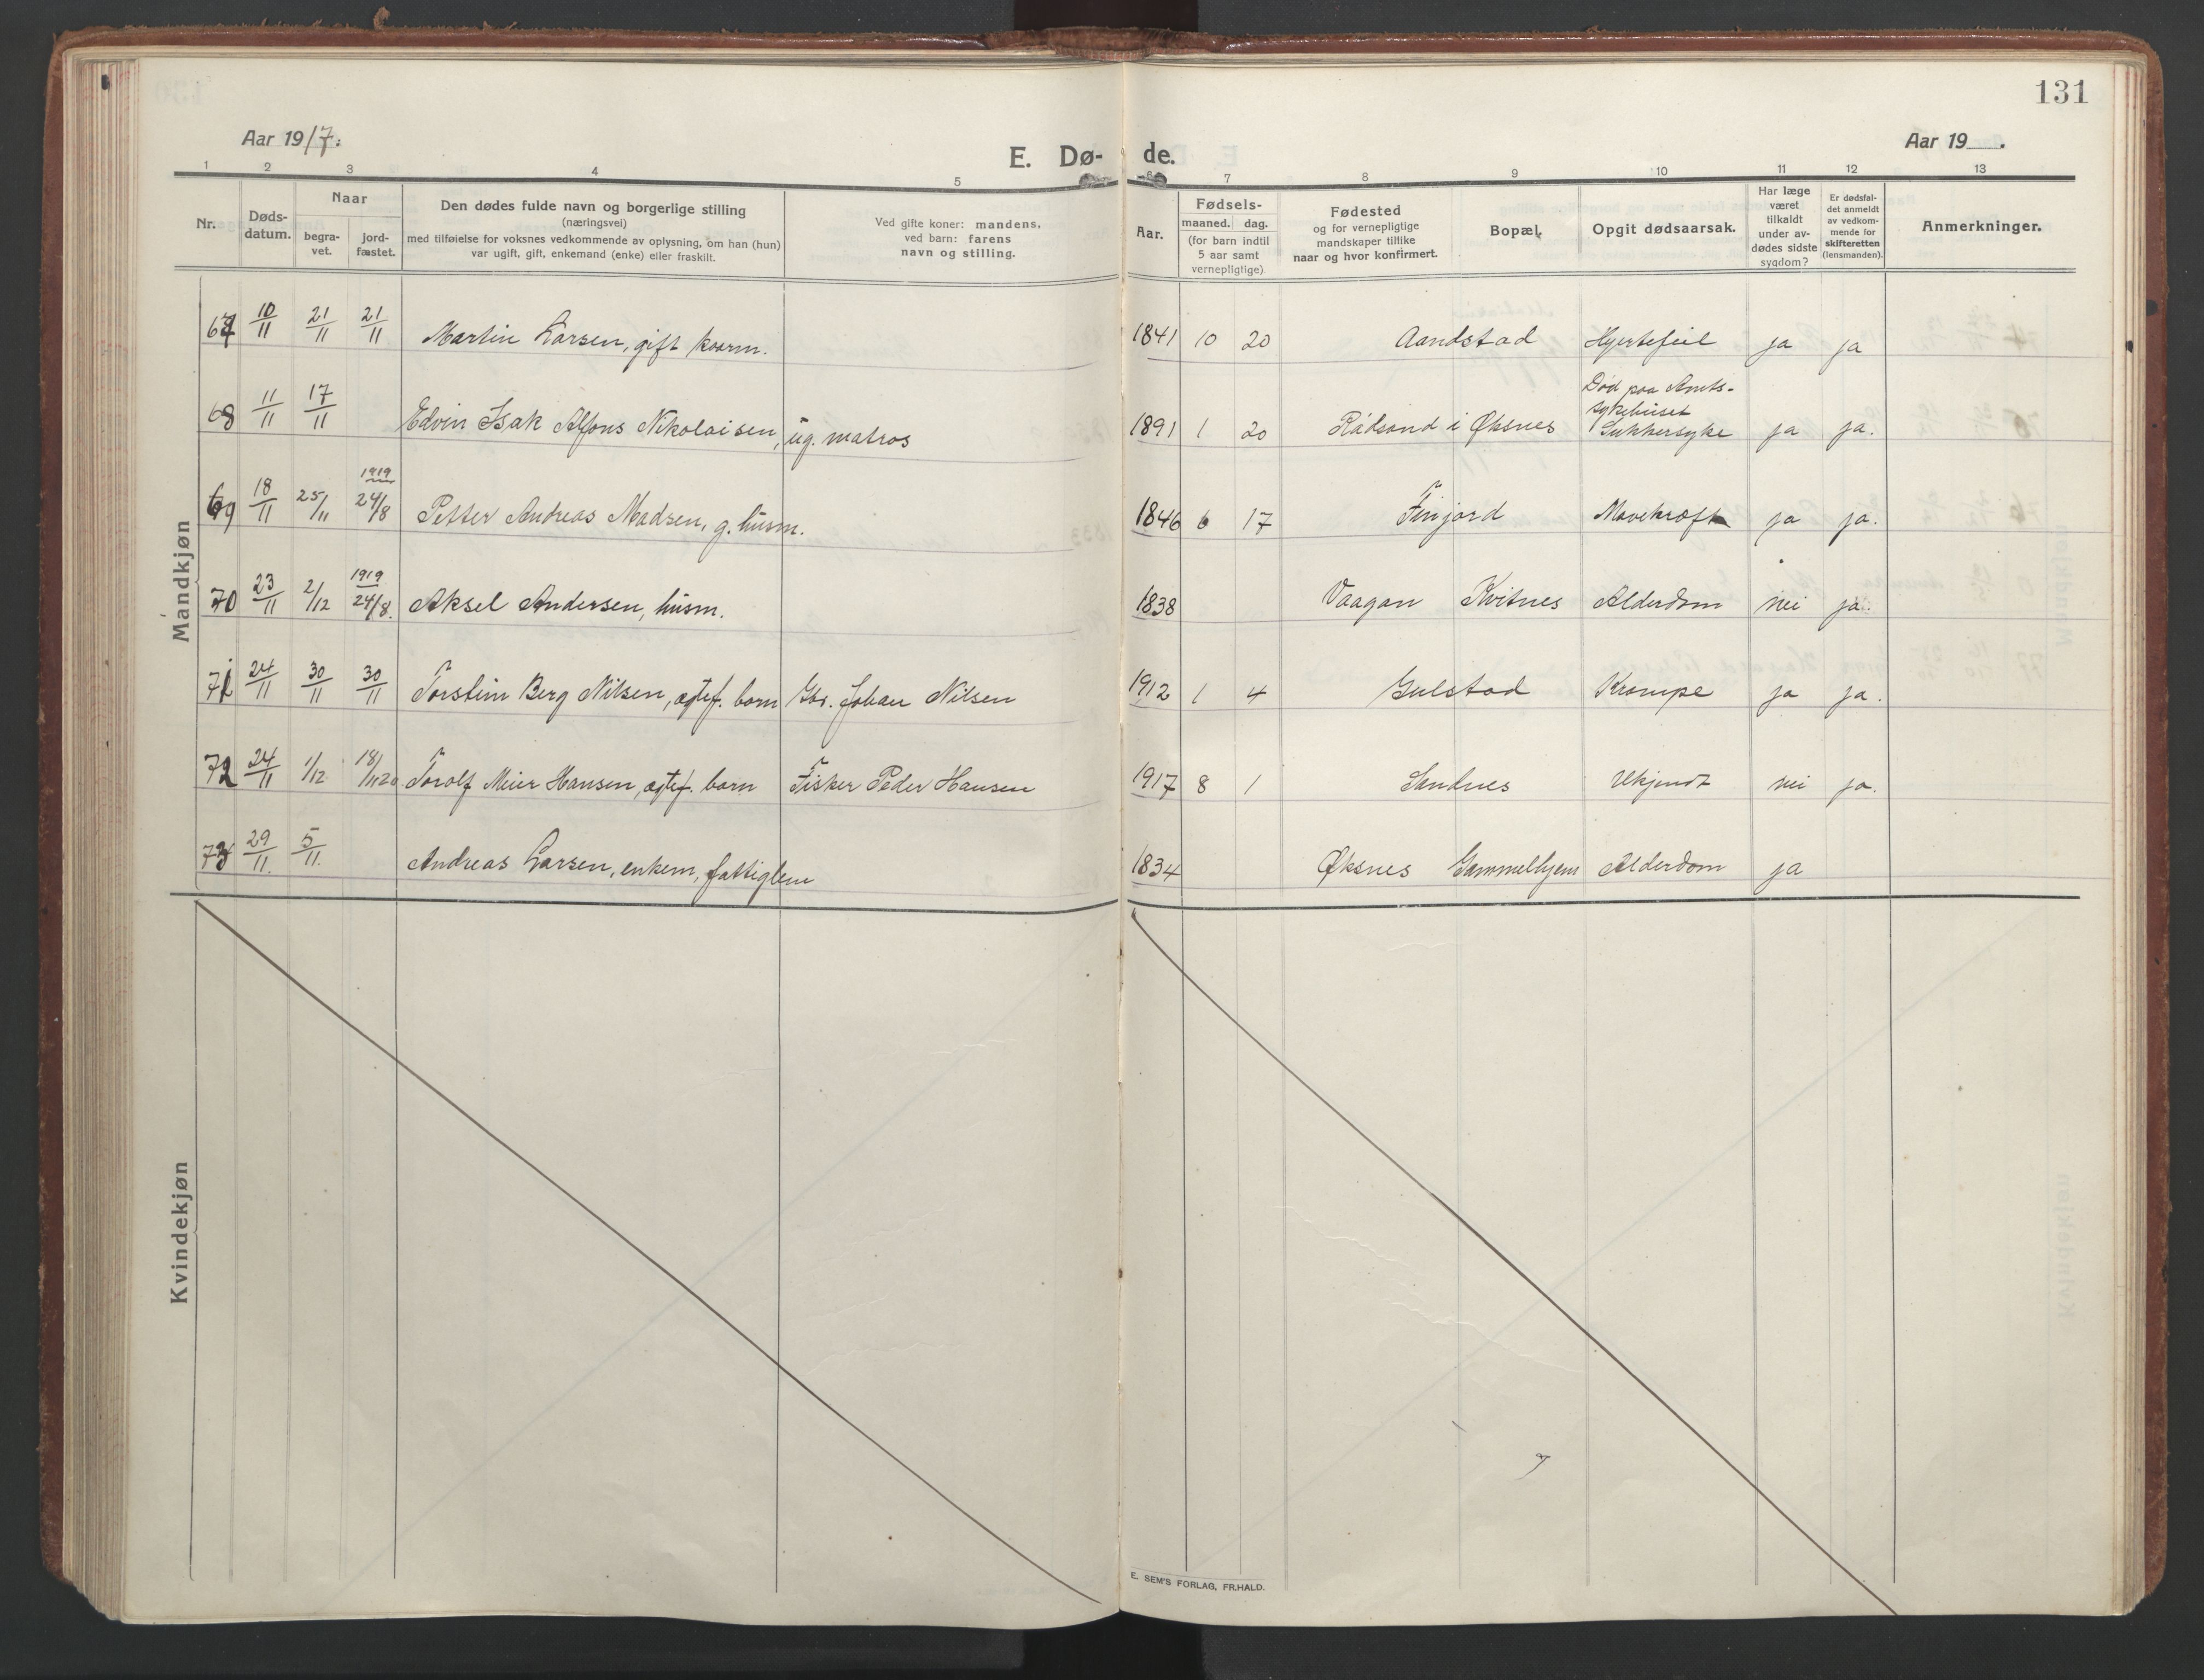 131
Aar 1917.
E. Dø-
de.
Aar 19 .
1 2 3 4 5 6 7 8 9 10 11 12 13
Nr.
Døds-
datum.
Naar
begra-
vet.
jord-
fæstet.
Den dødes fulde navn og borgerlige stilling
(næringsvei)
med tilføielse for voksnes vedkommende av oplysning, om han (hun)
var ugift, gift, enkemand (enke) eller fraskilt.
Ved gifte koner: mandens,
ved barn: farens
navn og stilling.
Aar.
Fødsels-
maaned. dag.
(for barn indtil
5 aar samt
vernepligtige)
Fødested
og for vernepligtige
mandskaper tillike
naar og hvor konfirmert.
Bopæl.
Opgit dødsaarsak.
Har læge
været
tilkaldt
under av-
dødes sidste
sygdom?
Er dødsfal-
det anmeldt
av vedkom-
mende for
skifteretten
(lensmanden).
Anmerkninger.
Mandkjøn
67 10/11 21/11 21/11 Martin Larsen, gift kaarm. 1841 10 20 Aandstad Hjertefeil ja ja
Død paa Amts-
sykehuset
68 11/11 17/11 Edvin Isak Alfons Nikolaisen, ug. matros 1891 1 20 Rødsand i Øksnes Sukkersyke ja ja.
1919
69 18/11 25/11 24/8 Petter Andreas Madsen, g. husm. 1846 6 17 Finjord Mavekræft ja ja.
1919
70 23/11 2/12 24/8. Aksel Andersen, husm. 1838 Vaagan Kvitnes Alderdom nei ja.
71 24/11 30/11 30/11 Torstein Berg Nilsen, ægtef. barn Gbr. Johan Nilsen 1912 1 4 Gulstad Krampe ja ja.
72 24/11 1/12 18/1120 Torolf Meier Hansen, ægtef. barn Fisker Peder Hansen 1917 8 1 Sandnes Ukjendt nei ja.
73 29/11. 5/11. Andreas Larsen, enkem, fattiglem 1834 Øksnes Gammelhjem Alderdom ja
Kvindekjøn
E. SEM'S FORLAG, FR.HALD.